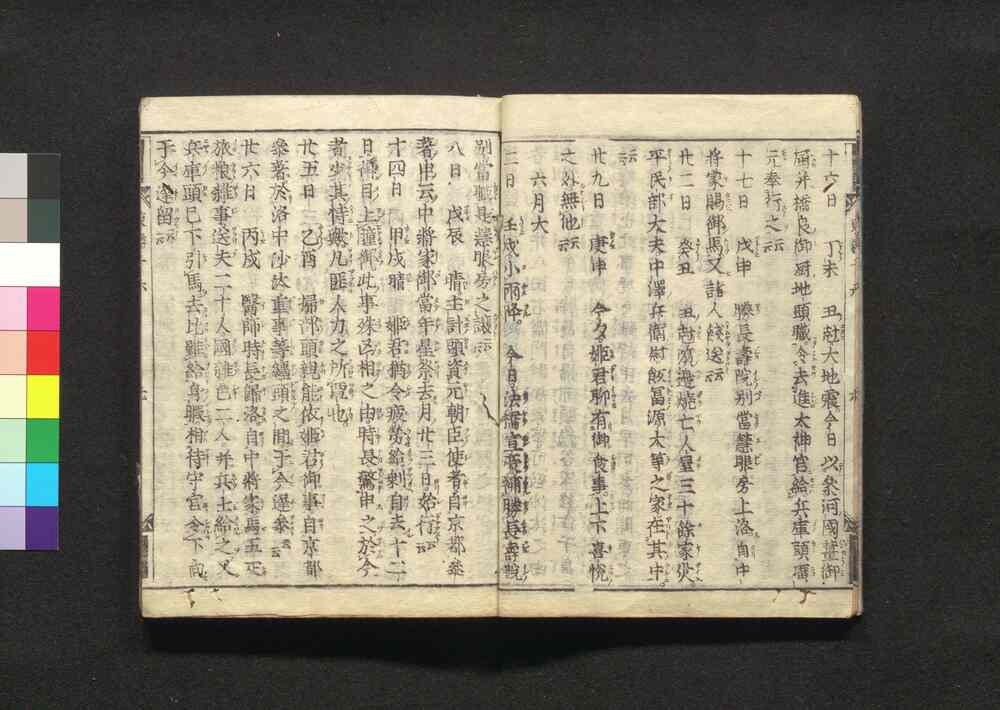 十六日 丁未 丑尅大地震今日以參河國薑御
厨并橋良御厨地頭職令去進太神宮給兵庫頭廣
元奉行之云云
十七日 戊申 勝長壽院別當慧眼房上洛自中
將家賜御馬又諸人餞送云云
廿二日 癸丑 丑尅濱邊燒亡人屋三十餘家災
平民部大夫中澤兵衛尉飯冨源太等之家在其中
云云
廿九日 庚申 今夕姫君聊有御食事上下喜悅
之外無他云云
六月大
二日 壬戌小雨降 今日法橋宣補勝長壽院
別當職慧眼房之讓云云
八日 戊辰 主計頭資元朝臣使者自京都參
著申云中將家御當年星祭去月廿三日始行云云
十四日 甲戌 姫君猶令疲勞給剩自去十二
日御目上御此事殊凶相之由時長驚申之於今
者少其恃歟凡匪人力之所覃也
廿五日 乙酉 掃部頭親能依姫君御事自京都
參著於洛中沙汰重事等纏頭之間于今遲參云云
廿六日 丙戌 醫師時長歸洛自中將家馬五疋
旅粮雜事送夫二十人國雜色二人并兵士給之又
兵庫頭已下引馬去比雖給身暇相待守宮令下向
于今逗留云云